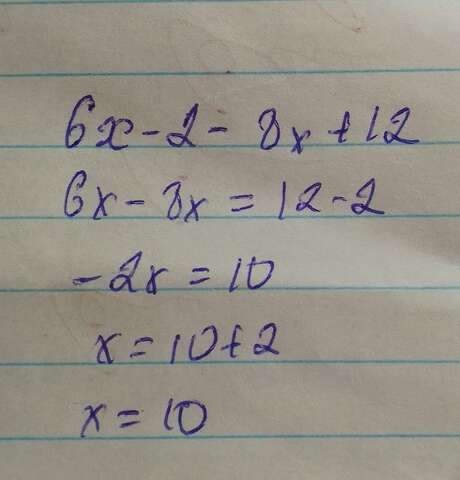 6x-2- 8x+12
6x-8x=12-2
-2x=10
x=10+2
x=10